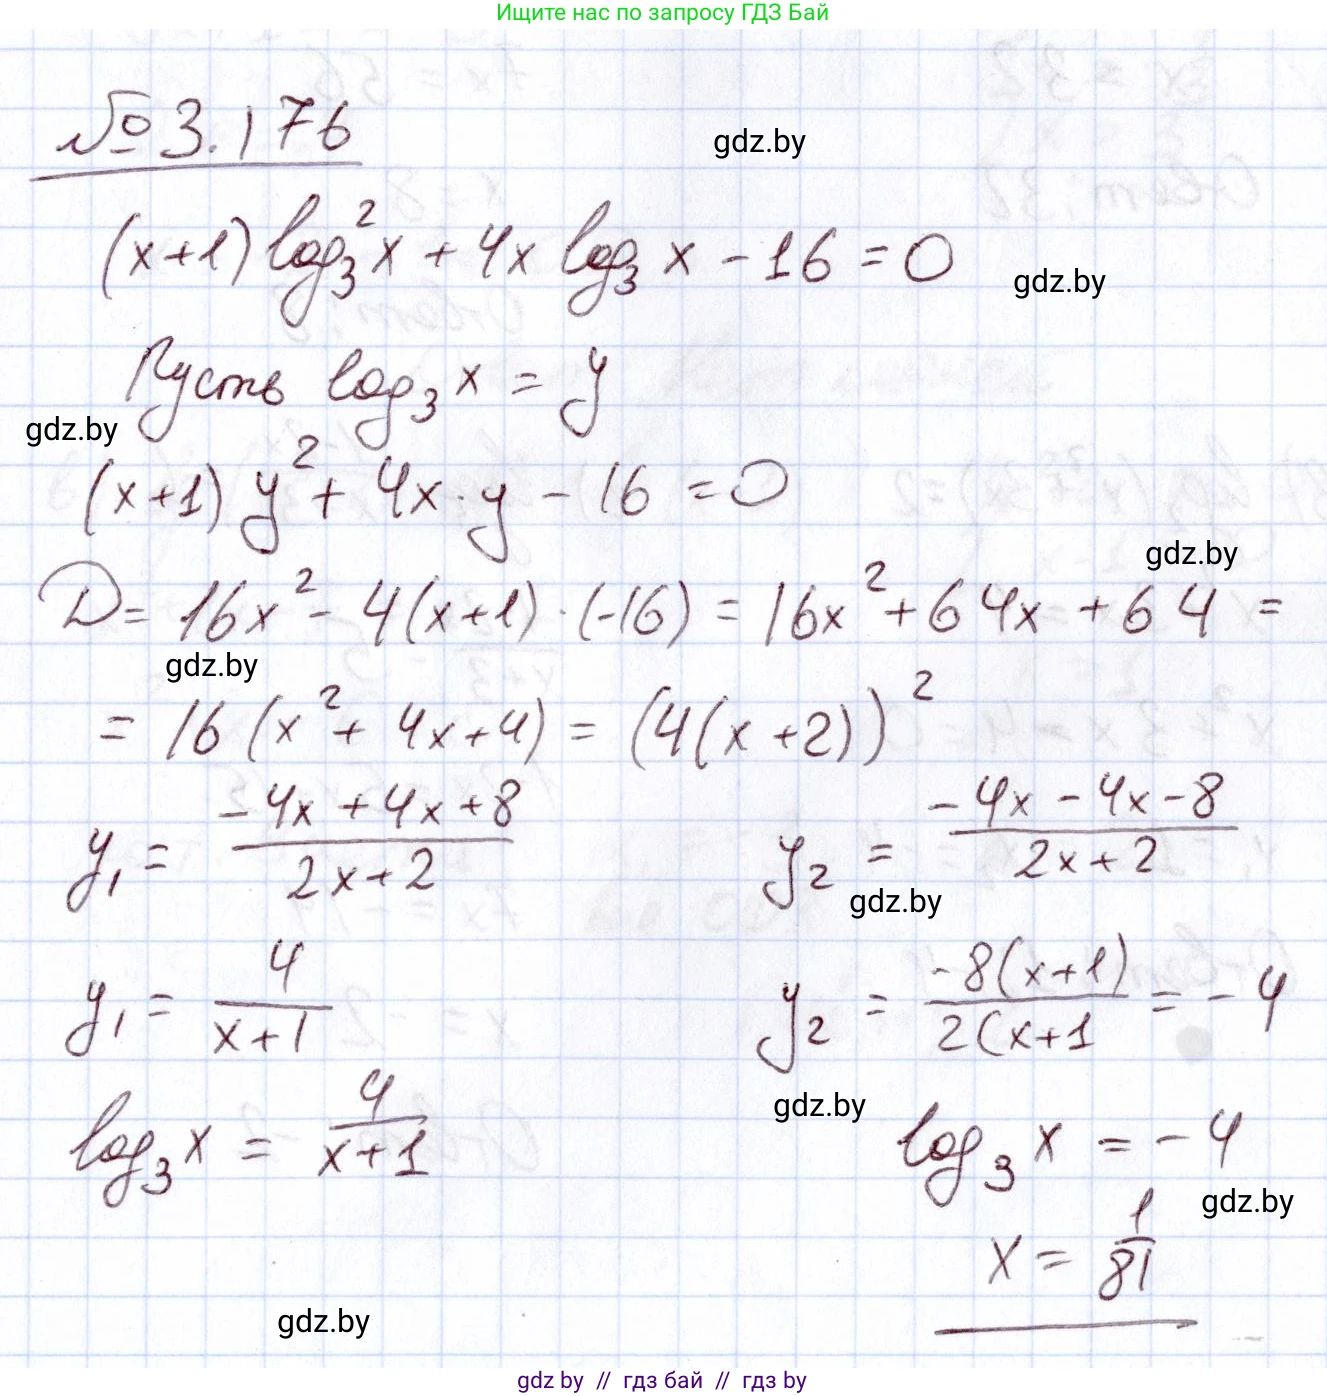 Ищите нас по запросу ГДЗ Бай
№3.176
gdz.by
(x+1) log₃² x + 4x log₃ x - 16 = 0
gdz.by
Пусть log₃ x = y
gdz.by
(x+1) y² + 4x·y - 16 = 0
gdz.by
D = 16x² - 4(x+1)·(-16) = 16x² + 64x + 64 =
gdz.by
= 16(x² + 4x+4) = (4(x+2))²
y₁ = (-4x+4x+8)/(2x+2) y₂ = (-4x-4x-8)/(2x+2)
gdz.by
y₁ = 4/(x+1) y₂ = -8(x+1)/2(x+1 = -4
gdz.by
log₃ x = 4/(x+1) log₃ x = -4
gdz.by
x = 1/81
gdz.by
gdz by // гдз бай // gdz by